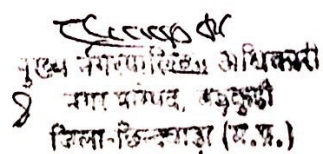 मुख्य नगरपालिका अधिकारी
नगर परिषद,
जिला-छिन्दवाड़ा (म.प्र.)